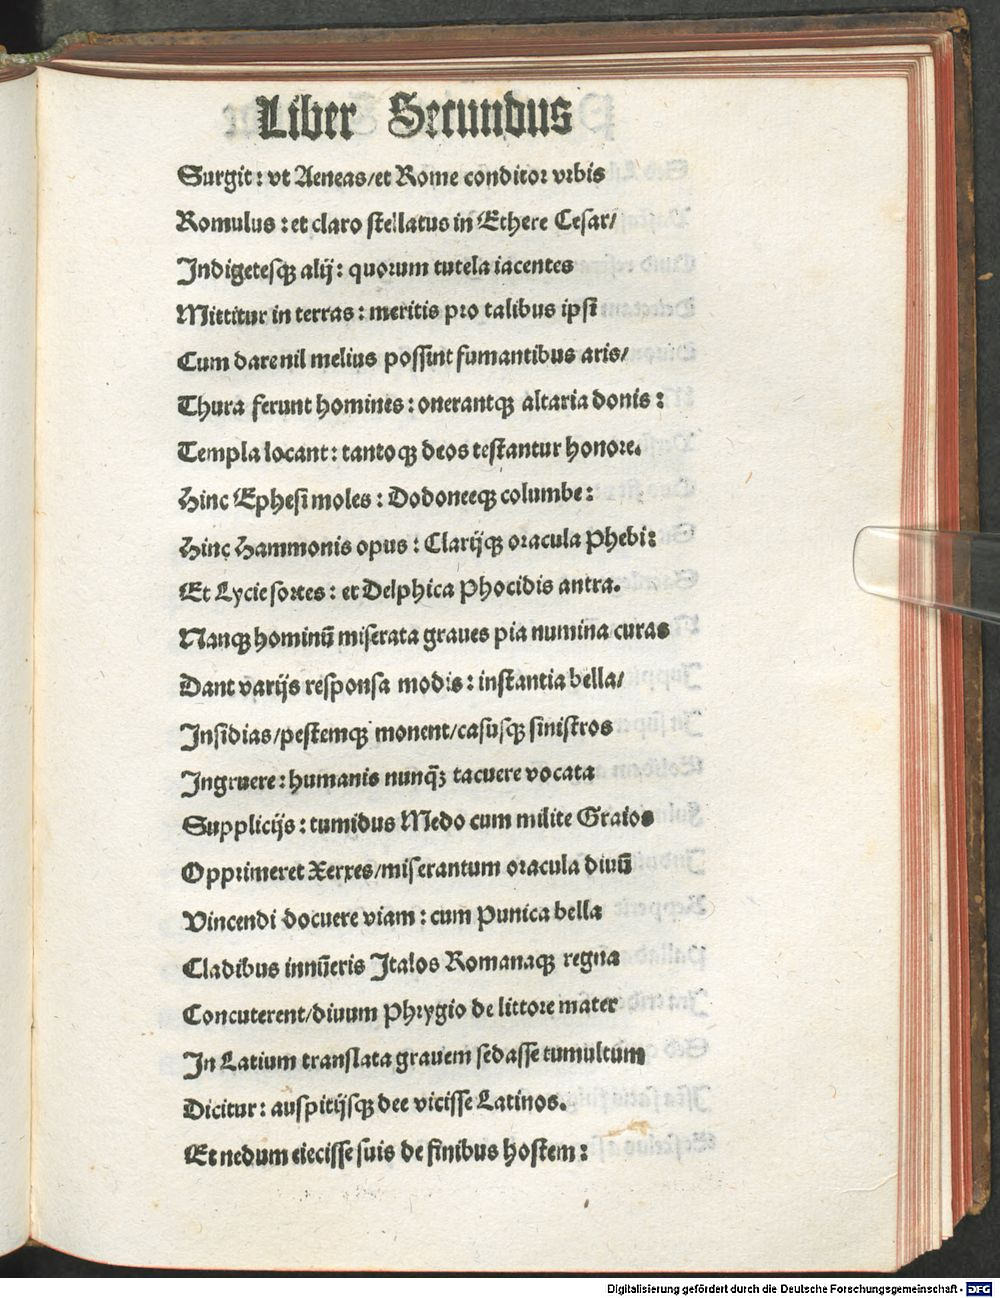 Liber Secundus
Surgit: vt Aeneas/et Rome conditor vrbis
Romulus: et claro stellatus in Ethere Cesar/
Indigetesqꝫ alij: quorum tutela iacentes
Mittitur in terras: meritis pro talibus ipsi
Cum dare nil melius possint fumantibus aris/
Thura ferunt homines: onerantqꝫ altaria donis:
Templa locant: tantoqꝫ deos testantur honore.
Hinc Ephesi moles: Dodoneeqꝫ columbe:
Hinc Hammonis opus: Clarijqꝫ oracula Phebi:
Et Lycie sortes: et Delphica Phocidis antra.
Nanqꝫ hominū miserata graues pia numina curas
Dant varijs responsa modis: instantia bella/
Insidias/pestemqꝫ monent/casusqꝫ sinistros
Ingruere: humanis nunqꝫ̄ tacuere vocata
Supplicijs: tumidus Medo cum milite Graios
Opprimeret Xerxes/miserantum oracula diuū
Vincendi docuere viam: cum Punica bella
Cladibus innūeris Italos Romanaqꝫ regna
Concuterent/diuum Phrygio de littore mater
In Latium translata grauem sedasse tumultum
Dicitur: auspitijsqꝫ dee vicisse Latinos.
Et nedum eiecisse suis de finibus hostem:
Digitalisierung gefördert durch die Deutsche Forschungsgemeinschaft - DFG